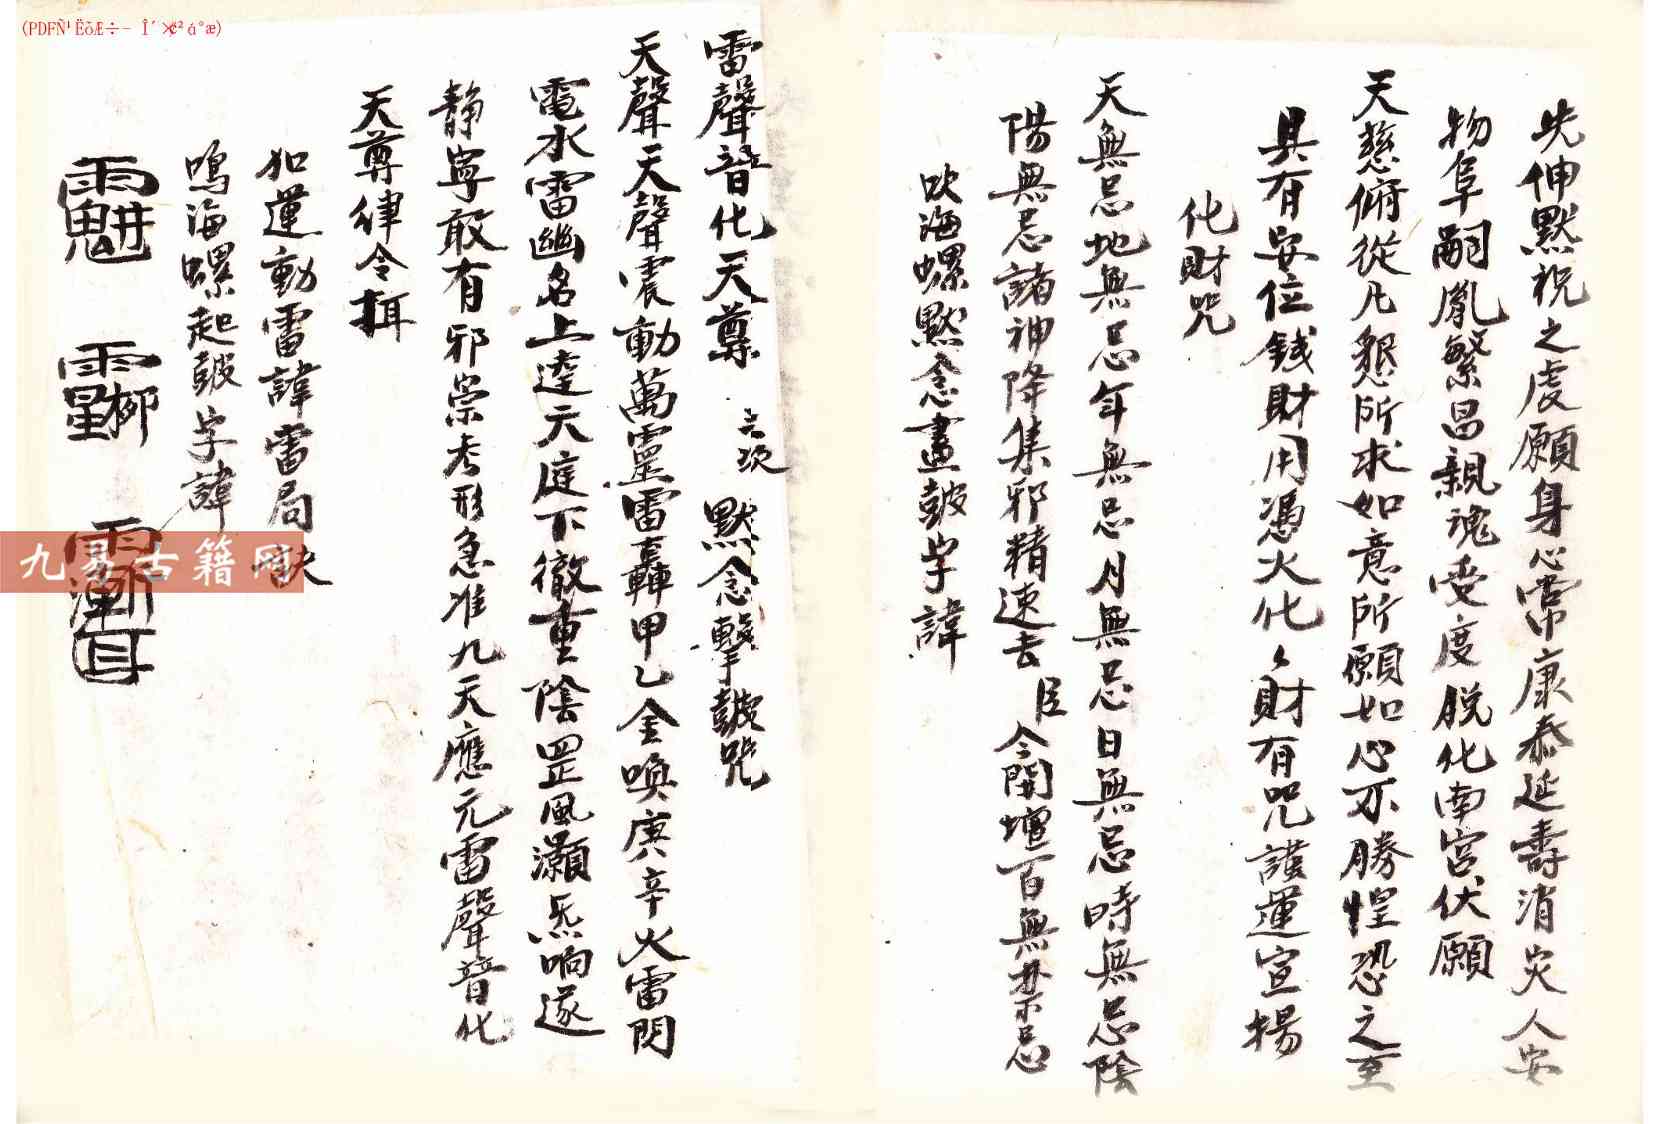 先伸默祝之虔願身心常康泰延壽消灾人安
物阜嗣胤繁昌親魂受度脱化南宮伏願
天慈俯從凡懇所求如意所願如心不勝惶恐之至
具有安位錢財用憑火化々財有咒謹運宣揚
化財咒
天無忌地無忌年無忌月無忌日無忌時無忌陰
陽無忌諸神降集邪精速去 臣 今開壇百無禁忌
吹海螺默念畫鼓字諱
雷聲普化天尊 默念擊鼓咒
天聲天聲震動萬靈雷轟甲乙金喚庚辛火雷閃
電水雷幽名上達天庭下徹重陰罡風灝炁响遂
静寧敢有邪祟考形急准九天應元雷聲普化
天尊律令
如運動雷諱雷局訣
鳴海螺起鼓字諱
九易古籍网